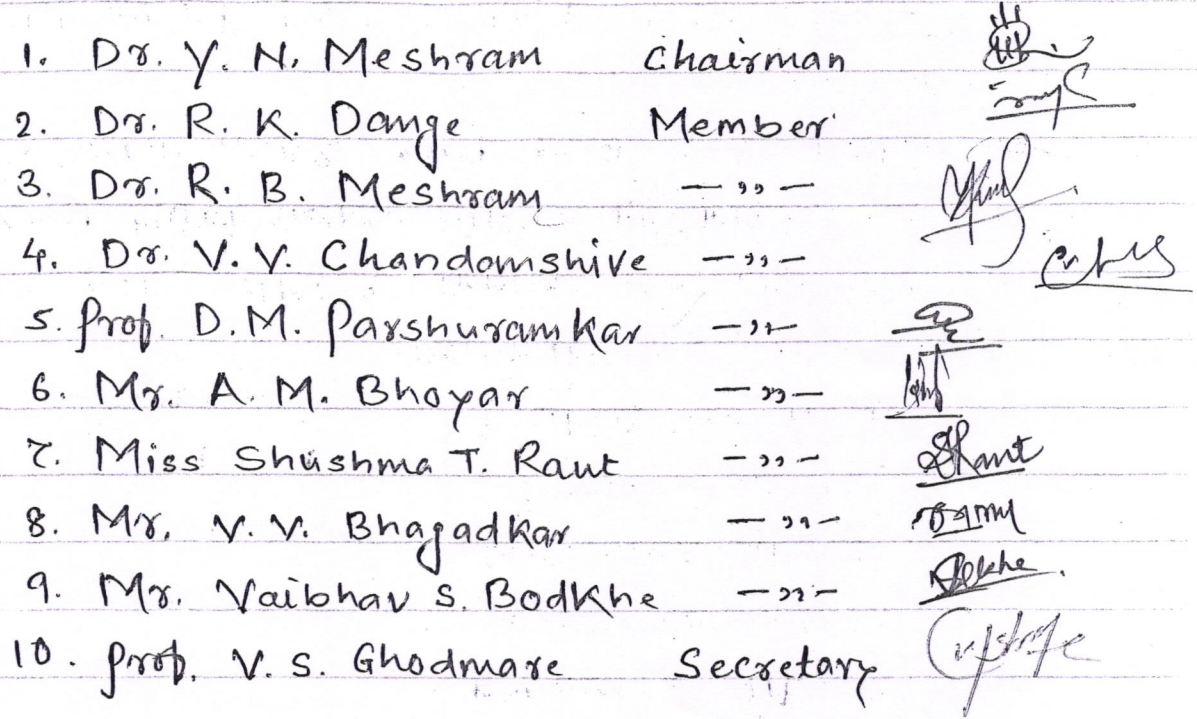 1. Dr. Y. N. Meshram Chairman
2. Dr. R. K. Dange Member
3. Dr. R. B. Meshram — ,, —
4. Dr. V. V. Chandomshive — ,, —
5. Prof. D. M. Parshuramkar — ,, —
6. Mr. A. M. Bhoyar — ,, —
7. Miss Shushma T. Raut — ,, — SRaut
8. Mr. V. V. Bhagadkar — ,, —
9. Mr. Vaibhav S. Bodkhe — ,, —
10. Prof. V. S. Ghodmare Secretary